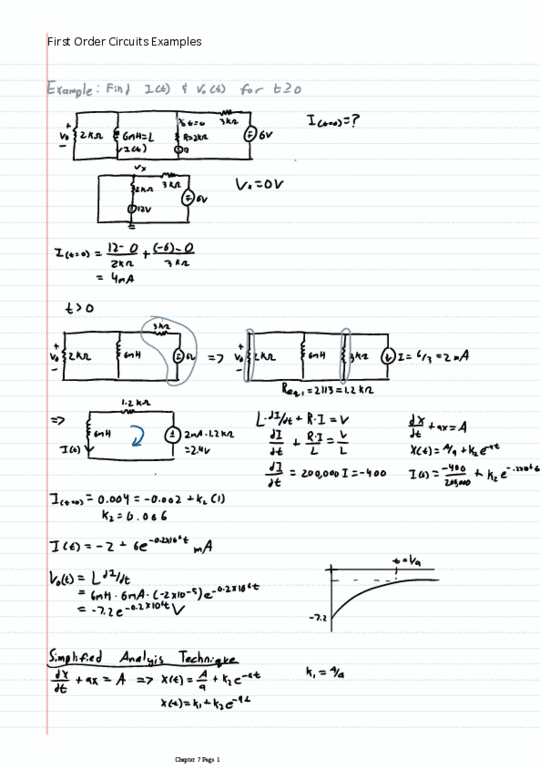 First Order Circuits Examples
Example: Find I(t) & V₀(t) for t≥0
+ V₀ - 2kΩ 6mH=L I(t) t=0 R=2kΩ 3kΩ 6V I(t=0)=?
Vₓ 2kΩ 3kΩ 12V 6V Vₓ=0V
I(t=0) = (12-0)/2kΩ + ((-6)-0)/3kΩ
= 4mA
t>0
+ V₀ - 2kΩ 6mH 3kΩ 6V => + V₀ - 2kΩ 6mH 3kΩ I= 6/3 =2mA
Req1 = 2||3=1.2kΩ
=> 1.2kΩ 6mH I(t) 2mA·1.2kΩ =2.4V
L·dI/dt + R·I = V
dI/dt + R·I/L = V/L
dI/dt = 200,000 I = -400
dx/dt + ax = A
X(t) = A/a + k₂e^-at
I(t) = -400/200,000 + k₂e
I(t=0) = 0.004 = -0.002 + k₂(1)
k₂ = 0.006
I(t) = -2 + 6e^-0.2x10⁶t mA
V₀(t) = L dI/dt
= 6mH · 6mA · (-2x10⁻⁵)e^-0.2x10⁶t
= -7.2e^-0.2x10⁶t V
t=1/a
-7.2
Simplified Analysis Technique
dx/dt + ax = A => X(t) = A/a + k₂e^-at k₁ = A/a
X(t) = k₁ + k₂e^-at
Chapter 7 Page 1